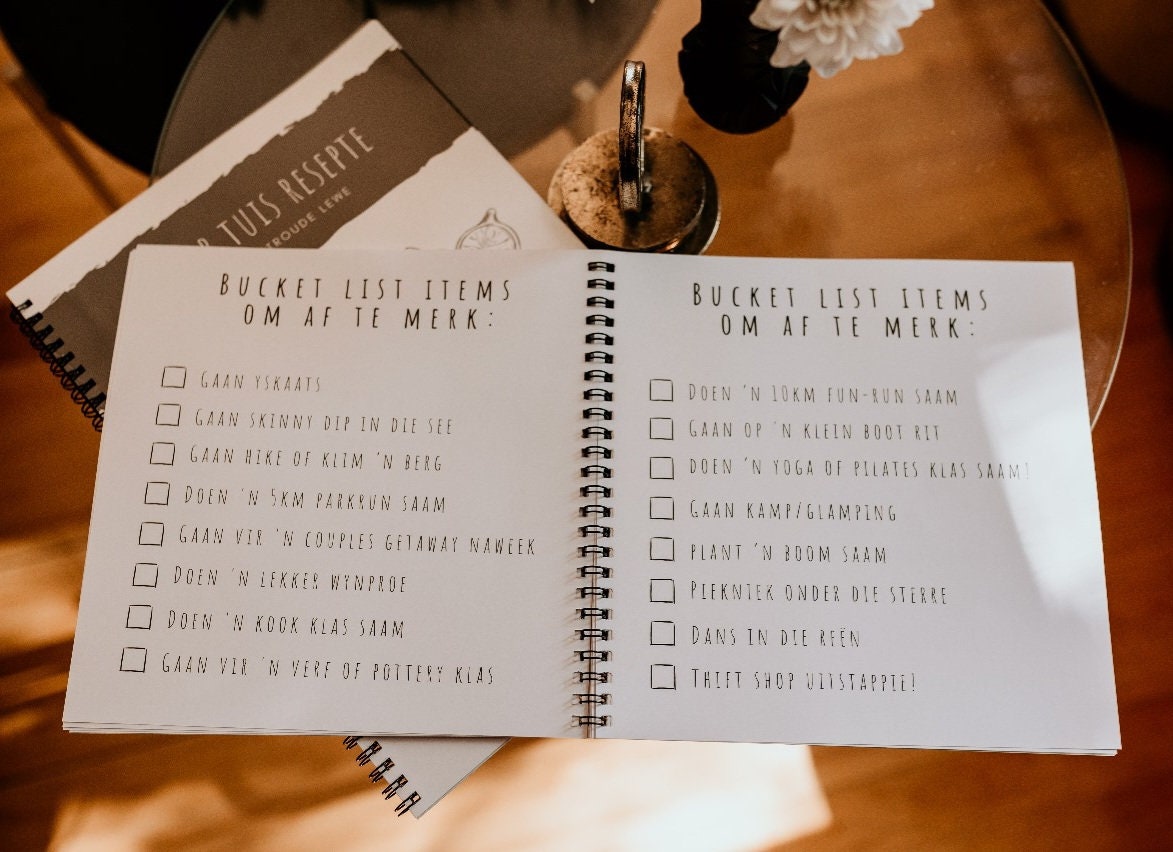 TUIS RESEPTE
BUCKET LIST ITEMS
OM AF TE MERK:
GAAN YSKAATS
GAAN SKINNY DIP IN DIE SEE
GAAN HIKE OF KLIM 'N BERG
DOEN 'N 5KM PARKRUN SAAM
GAAN VIR 'N COUPLES GETAWAY NAWEEK
DOEN 'N LEKKER WYNPROE
DOEN 'N KOOK KLAS SAAM
GAAN VIR 'N VERF OF POTTERY KLAS
BUCKET LIST ITEMS
OM AF TE MERK:
DOEN 'N 10KM FUN-RUN SAAM
GAAN OP 'N KLEIN BOOT RIT
DOEN 'N YOGA OF PILATES KLAS SAAM!
GAAN KAMP/GLAMPING
PLANT 'N BOOM SAAM
PIEKNIEK ONDER DIE STERRE
DANS IN DIE REËN
THIFT SHOP UITSTAPPIE!